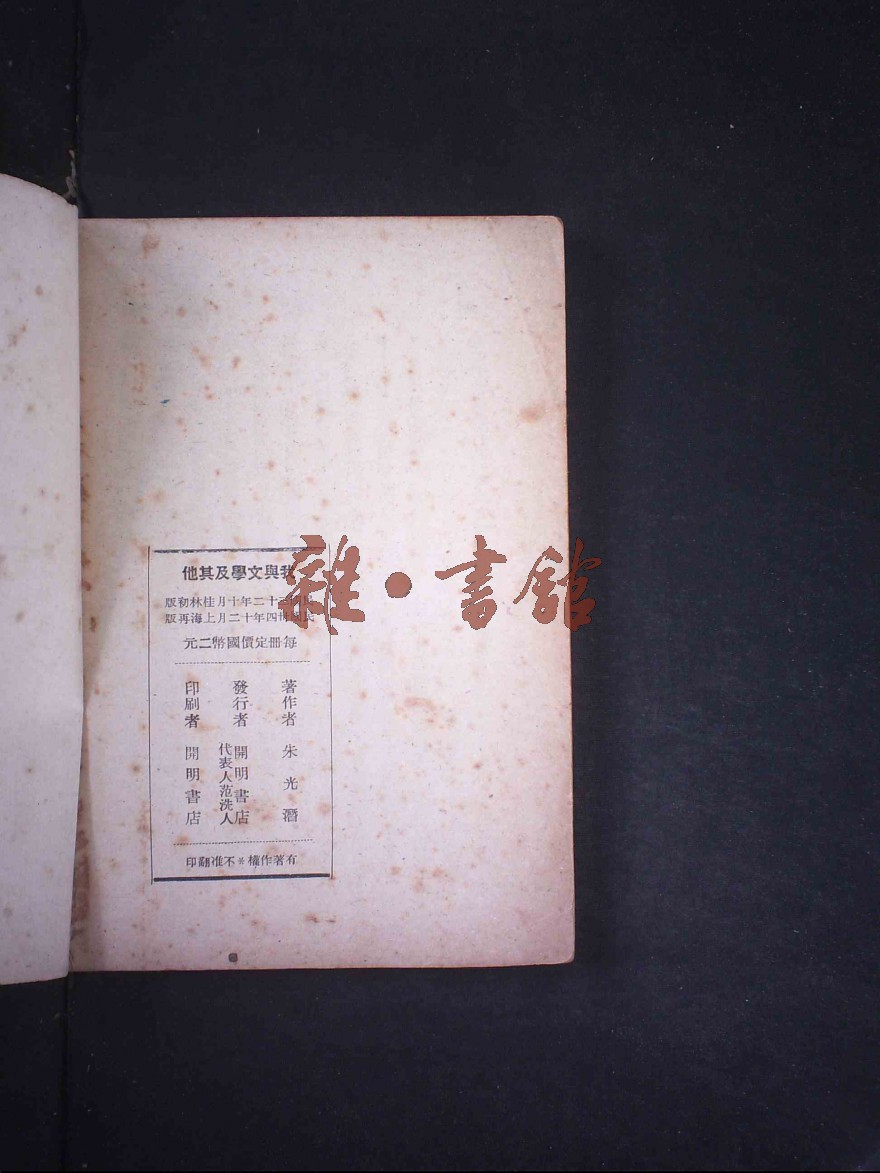 我與文學及其他
民國三十二年十月桂林初版
民國卅四年十二月上海再版
每冊定價國幣二元
著作者 朱光潛
發行者 開明書店
代表人范洗人
印刷者 開明書店
有著作權＊不准翻印
雜・書館